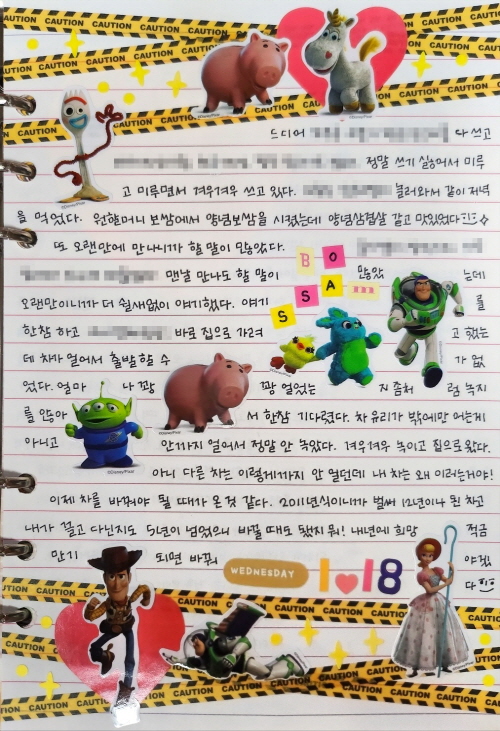 CAUTION CAUTION CAUTION CAUTION
드디어 다 쓰고
정말 쓰기 싫어서 미루
고 미루면서 겨우겨우 쓰고 왔다. 놀러와서 같이 저녁
을 먹었다. 원할머니 보쌈에서 양념보쌈을 시켰는데 양념삼겹살 같고 맛있었다
또 오랜만에 만나니까 할 말이 많았다.
BO
맨날 만나도 할 말이 많았는데
SSAm
오랜만이니까 더 쉴새없이 얘기했다. 얘기를
한참 하고 바로 집으로 가려고 했는
데 차가 얼어서 출발할 수가 없
었다. 얼마나 꽝꽝 얼었는지 좀처럼 녹지
를 않아서 한참 기다렸다. 차 유리가 밖에만 어는게
아니고 안까지 얼어서 정말 안 녹았다. 겨우겨우 녹이고 집으로 왔다.
아니 다른 차는 이렇게까지 안 얼던데 내 차는 왜 이러는거야!
이제 차를 바꿔야 될 때가 온것 같다. 2011년식이니까 벌써 12년이나 된 차고
내가 끌고 다닌지도 5년이 넘었으니 바꿀 때도 됐지 뭐! 내년에 희망적금
만기되면 바꿔야겠다
WEDNESDAY 1 18
CAUTION CAUTION CAUTION CAUTION